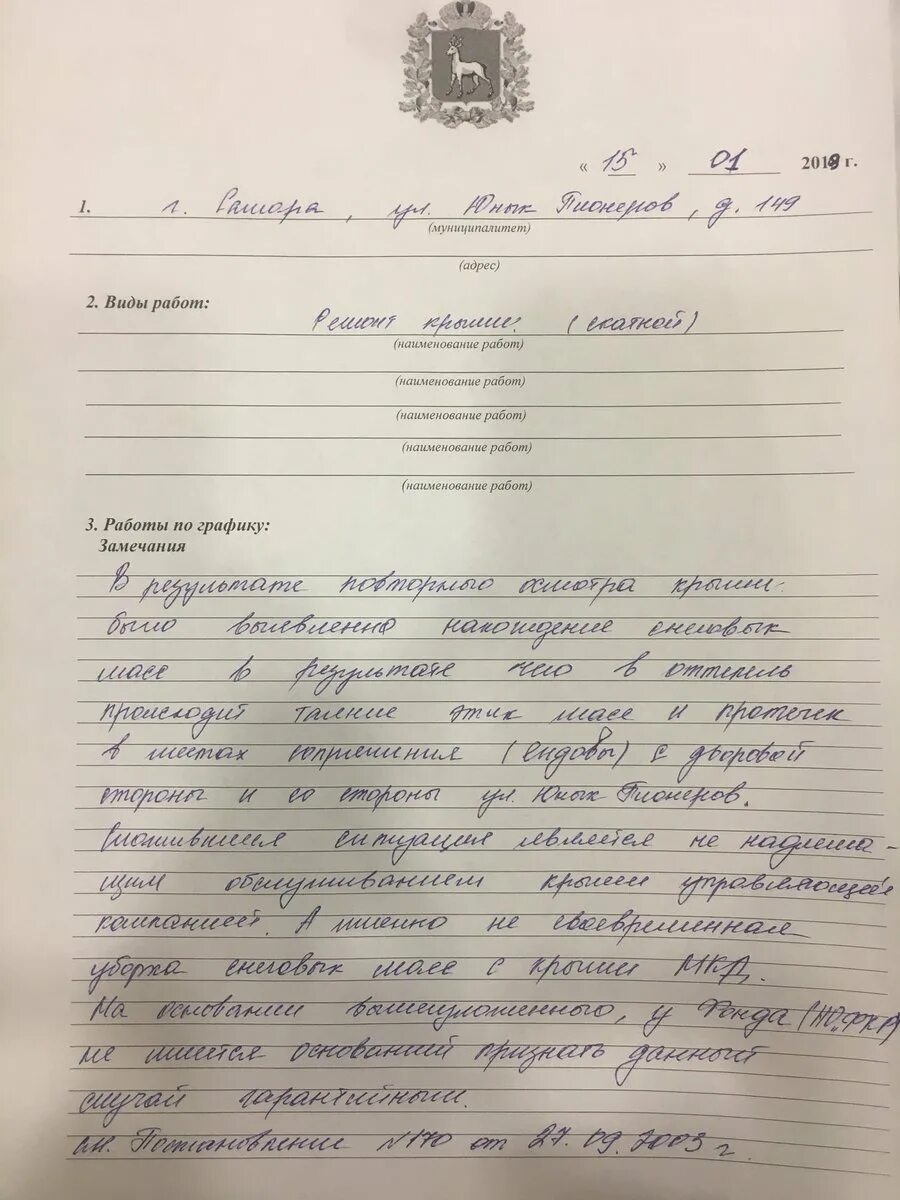 « 15 » 01 2019 г.
1. г. Самара, ул. Юных Пионеров, д. 149
(муниципалитет)
(адрес)
2. Виды работ:
Ремонт крыши (скатной)
(наименование работ)
(наименование работ)
(наименование работ)
(наименование работ)
(наименование работ)
3. Работы по графику:
Замечания
В результате повторного осмотра крыши
было выявленно нахождение снеговых
масс в результате чего в оттепель
происходит таяние этих масс и протечек
в местах сопряжения (ендовы) с дворовой
стороны и со стороны ул. Юных Пионеров.
Сложившиеся ситуация является не надлежа-
щим обслуживанием крыши управляющей
компанией. А именно не своевременная
уборка снеговых масс с крыши МКД.
На основании вышеизложенного, у Фонда
не имеется оснований признать данный
случай гарантийным.
см. Постановление №170 от 27.09.2003 г.